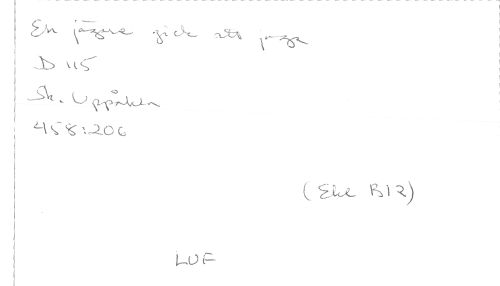 En jägare gick att jaga
D 115
Sk. Uppåkra
458:206
(Eke B12)
LUF